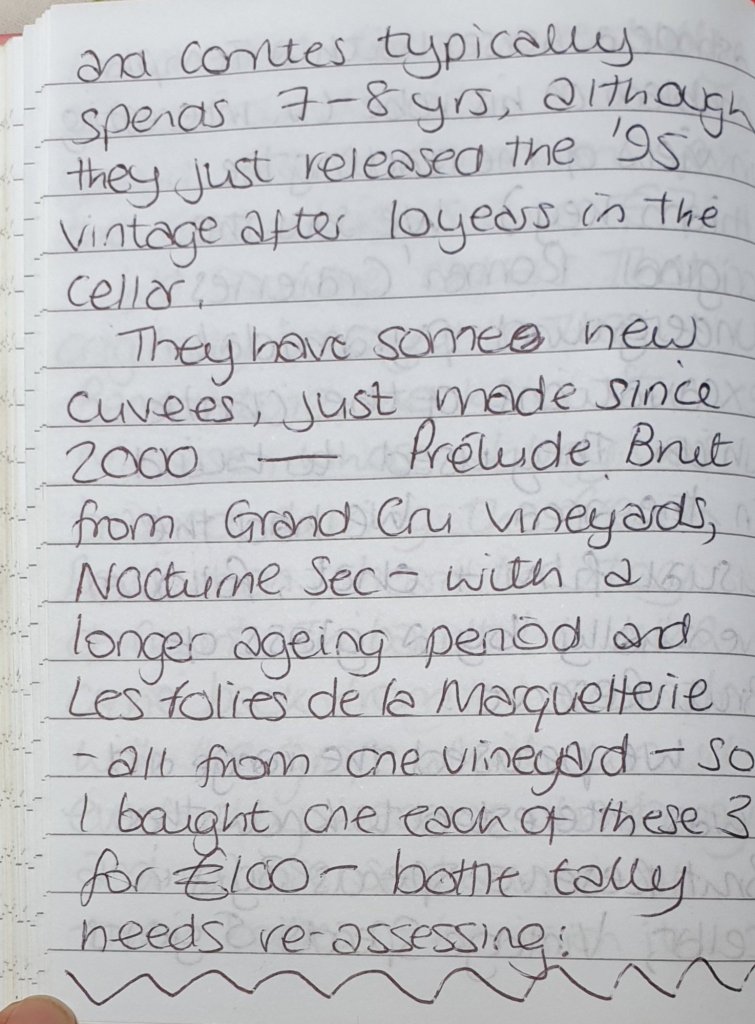 and comtes typically
spends 7-8 yrs, although
they just released the '95
vintage after 10 years in the
cellar.
They have some new
cuvees, just made since
2000 — Prélude Brut
from Grand Cru vineyards,
Nocturne Sec - with a
longer ageing period and
Les folies de la Marquetterie
- all from one vineyard - so
I bought one each of these 3
for €100 - bottle tally
needs re-assessing!